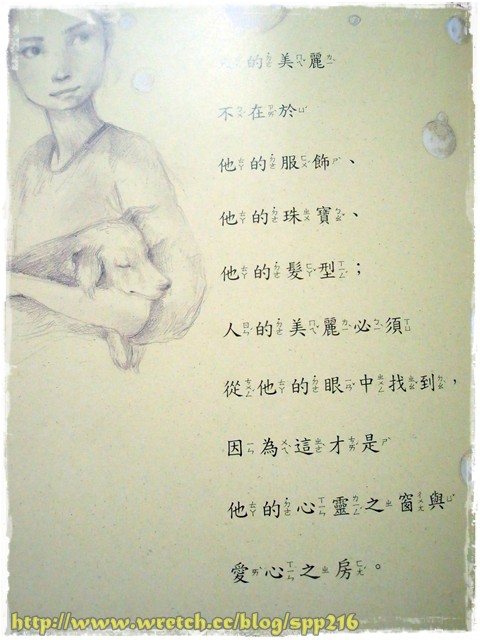 人的美麗
不在於
他的服飾、
他的珠寶、
他的髮型；
人的美麗必須
從他的眼中找到，
因為這才是
他的心靈之窗與
愛心之房。
http://www.wretch.cc/blog/spp216